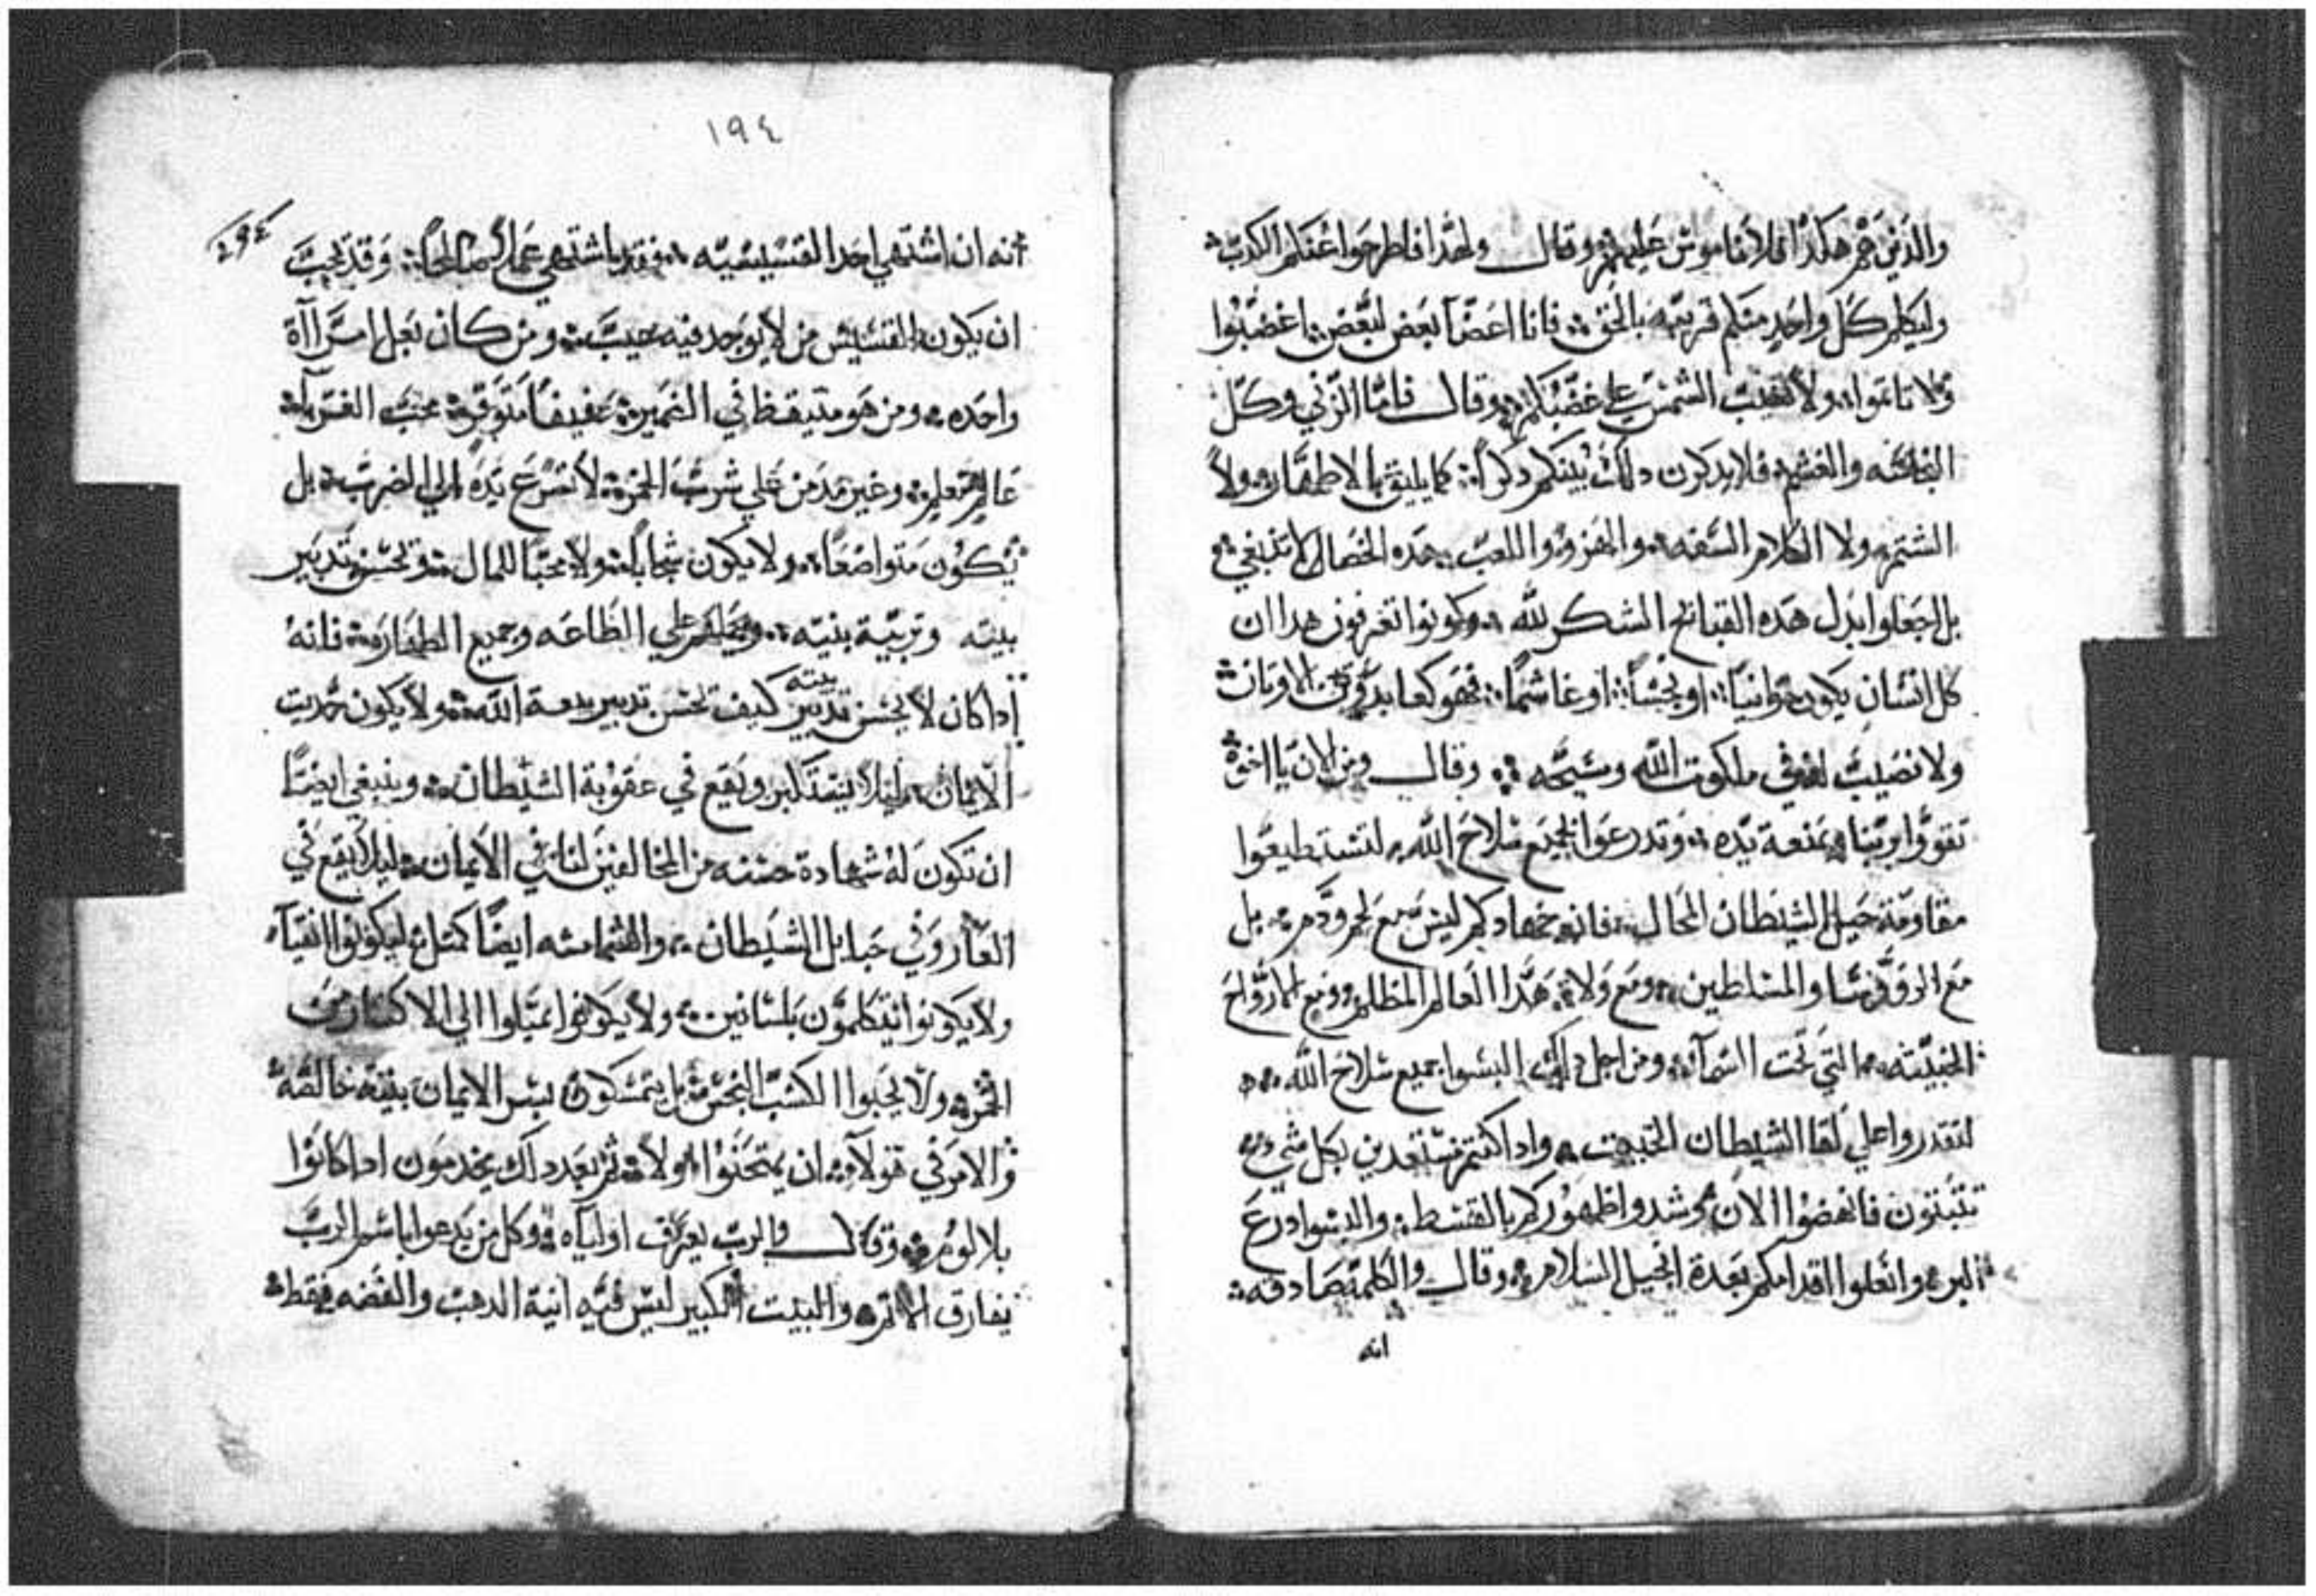 والذين هم هكذا فلا ناموس عليهم وقال ولهذا فاطرحوا عنكم الكدب
وليكلم كل واحد منكم قريبه بالحق فانا اعضآ بعض لبعض اغضبوا
ولا تاتموا ولا تغيب الشمس علي غضبكم وقال فاما الزني وكل
النجاسه والغشم فلا يدكرن دلك بينكم دكراً كما يليق بالاطهار ولا
الشتم ولا الكلام السفه والهزو واللعب هده الخصال لا تنبغي
بل اجعلوا بدل هده القبايح الشكر لله وكونوا تعرفون هدا ان
كل انسان يكون زوانياً او نجساً او غاشماً فهو كعابد الاوتان
ولا نصيب له في ملكوت الله ومسيحه وقال ومن الان يا اخوة
تقووا بربنا بمنعة يده وتدرعوا بجميع سلاح الله لتستطيعوا
مقاومة حيل الشيطان المحال فانه جهادكم ليس مع لحم ودم بل
مع الروؤسا والمسلطين ومع ولاة هدا العالم المظلم ومع الارواح
الخبيته التي تحت السمآ ومن اجل دلك البسوا جميع سلاح الله
لتقدروا علي لقا الشيطان الخبيت وادا كنتم مستعدين بكل شي
تتبتون فانهضوا الان وشدوا ظهوركم بالقسط والبسوا درع
البر وانعلوا اقدامكم بعدة انجيل السلام وقال والكلمة صادقه
انه
١٩٤
انه ان اشتهي احد القسيسيه فقد اشتهي عملاً صالحاً وقد يجب
ان يكون القسيس من لا يوجد فيه عيب ومن كان بعل امراآة
واحده ومن هو متيقظ في الضمير عفيفاً متوقر محب الغربآ
عالم معلم وغير مدمن علي شرب الخمر لا تسرع يده الي الضرب بل
يكون متواضعاً ولا يكون ولا محباً للمال ويحسن تدبير
بيته وتربية بنيه علي الطاعه وجميع الطهاره فانه
ادا كان لا يحسن تدبير بيته كيف يحسن تدبير بيعة الله ولا يكون حديت
الايمان ليلا يستكبر ويقع في عقوبة الشيطان وينبغي ايضاً
ان تكون له شهادة حسنه من المخالفين لنا في الايمان ليلا يقع في
العار وفي حبايل الشيطان والشمامسه ايضاً كمتل ليكونوا انقيآ
ولا يكونوا يتكلمون بلسانين ولا يكونوا يميلوا الي الاكتار من
الخمر ولا يحبوا الكسب النجس بل يتمسكون بسر الايمان بنية خالصة
والامر في هولآ ان يمتحنوا اولا تم بعد دلك يخدمون ادا كانوا
بلا لوم وقال والرب يعرف اوليآه وكل من يدعوا باسم الرب
يفارق الاتم والبيت الكبير ليس فيه انية الدهب والفضه فقط